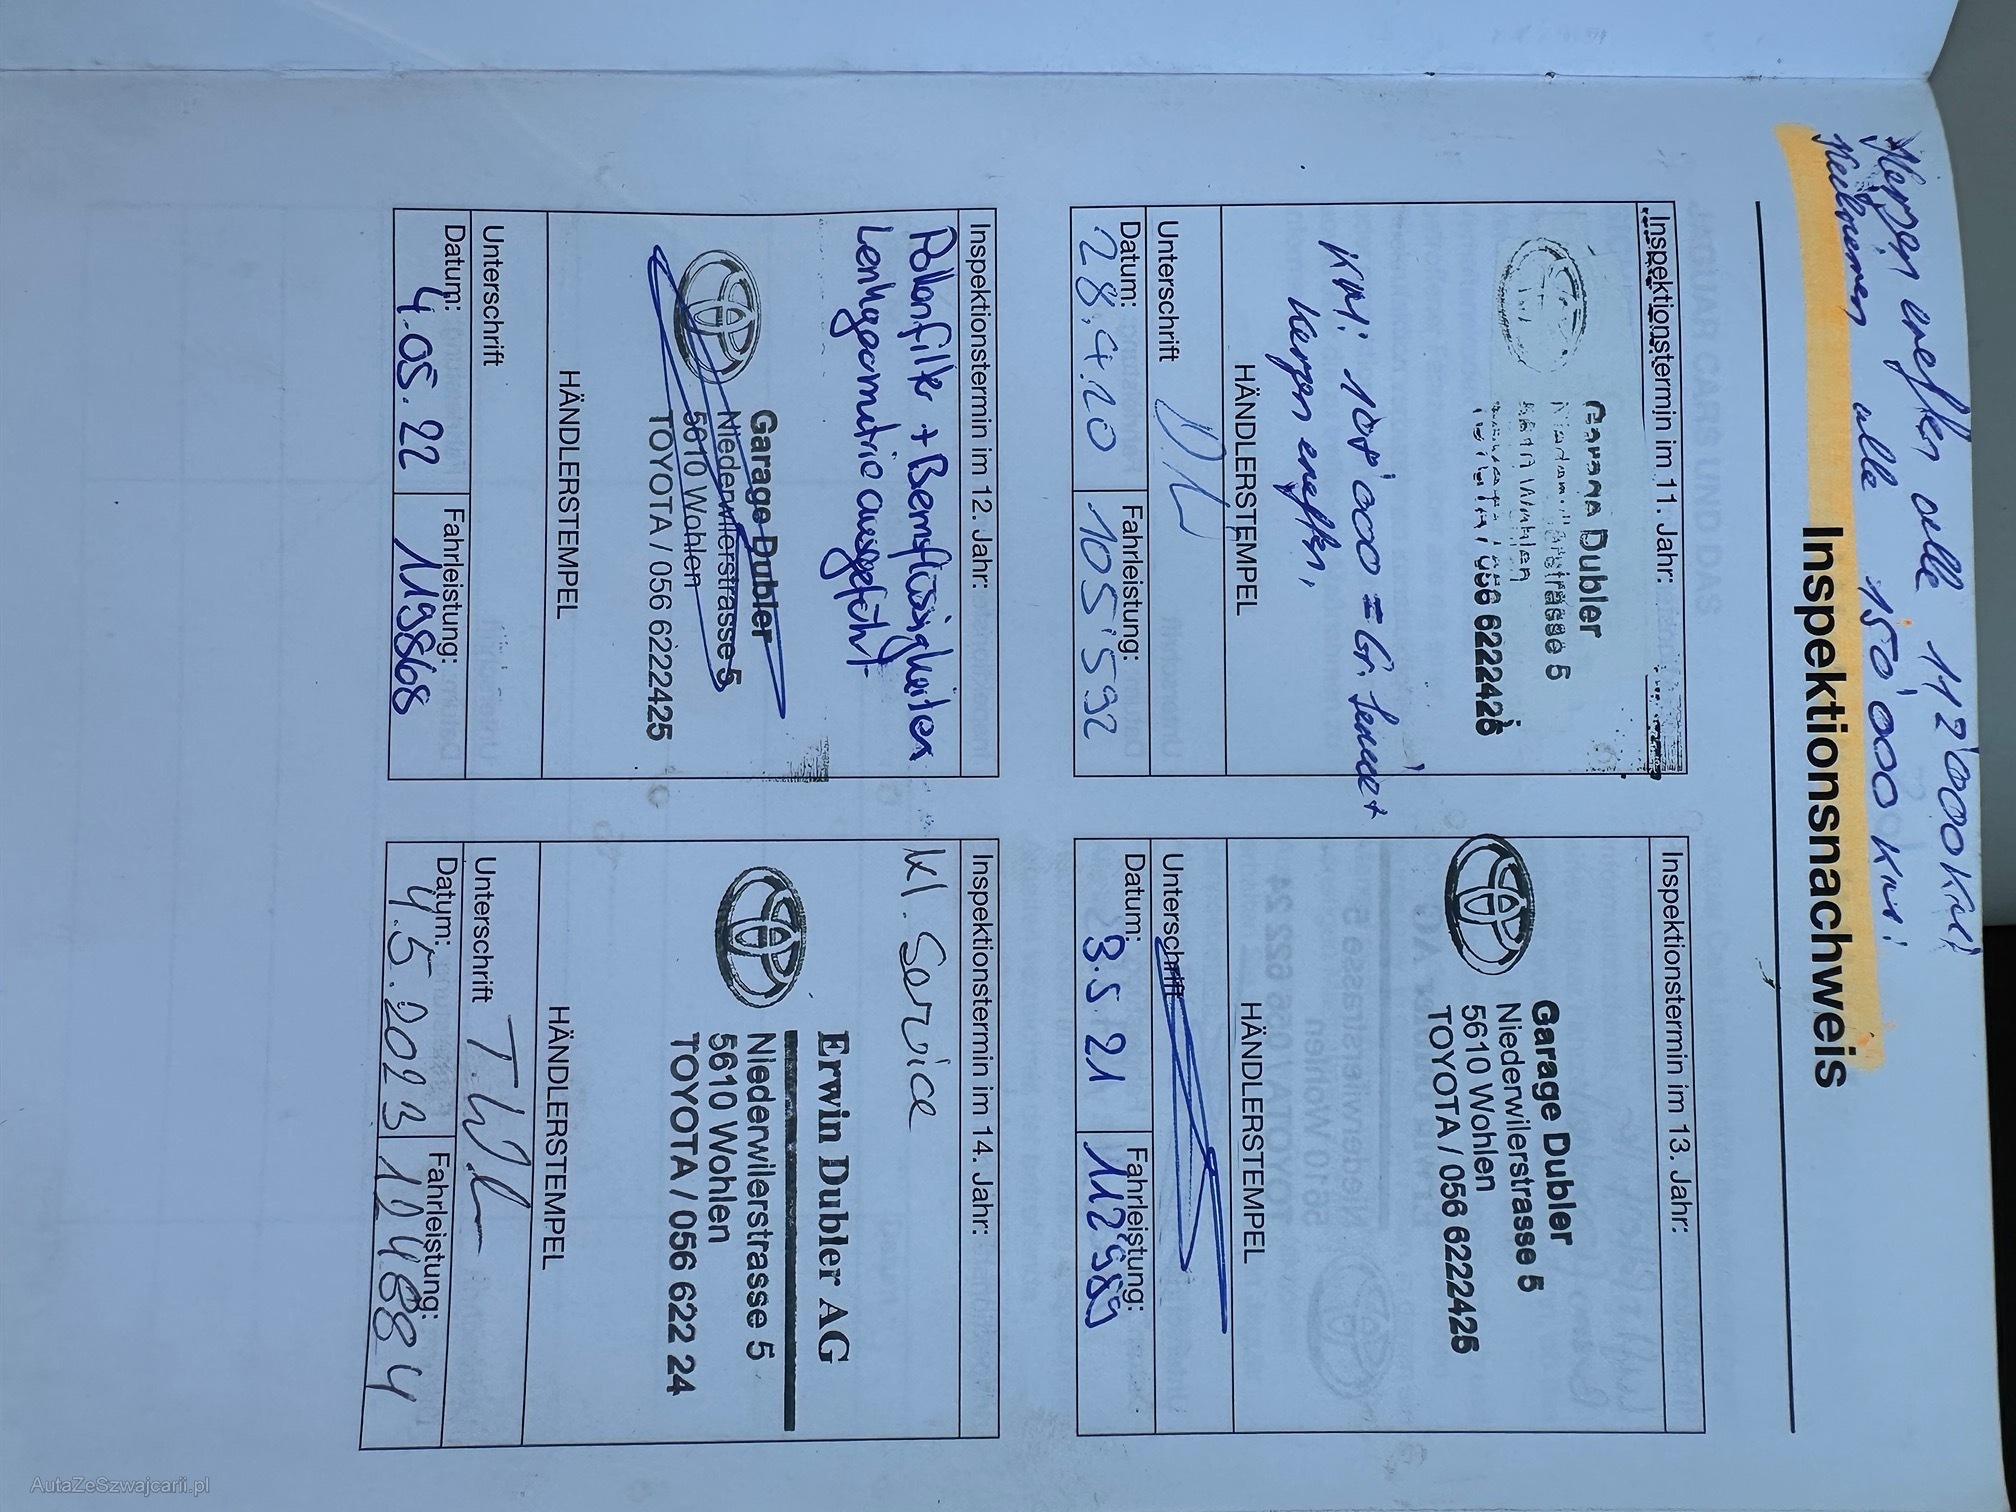 Kerzen ersetzen alle 112'000 Km!
Keilriemen alle 150'000 Km!
Inspektionsnachweis
Inspektionstermin im 11. Jahr:
Garage Dubler
Niederwilerstrasse 5
5610 Wohlen
TOYOTA / 056 6222425
KM: 108'000 = Gr. Service +
Kerzen ersetzen,
HÄNDLERSTEMPEL
Unterschrift
Datum: 28.4.20
Fahrleistung: 105'592
Inspektionstermin im 13. Jahr:
Garage Dubler
Niederwilerstrasse 5
5610 Wohlen
TOYOTA / 056 6222425
HÄNDLERSTEMPEL
Unterschrift
Datum: 3.5 21
Fahrleistung: 112'989
Inspektionstermin im 12. Jahr:
Pollenfilter + Bremsflüssigkeiten
Lenkgeometrie ausgeführt
Garage Dubler
Niederwilerstrasse 5
5610 Wohlen
TOYOTA / 056 6222425
HÄNDLERSTEMPEL
Unterschrift
Datum: 4.05.22
Fahrleistung: 119868
Inspektionstermin im 14. Jahr:
kl. Service
Erwin Dubler AG
Niederwilerstrasse 5
5610 Wohlen
TOYOTA / 056 622 24
HÄNDLERSTEMPEL
Unterschrift
Datum: 4.5.2023
Fahrleistung: 124884
AutaZeSzwajcarii.pl